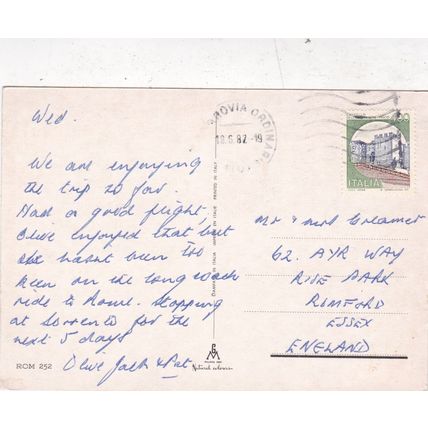 Wed.
We are enjoying
the trip so far.
Had a good flight,
Olive enjoyed that but
she hasn't been too
keen on the long coach
ride to Rome. Stopping
at Sorrento for the
next 5 days
Olive Jack & Pat
ROM 252
PRINTED IN ITALY
IMPRIME EN ITALIE
Natural colours
ROVIA ORDINARIA
18.5.82.-19
ITALIA
Mr & Mrs Creamer
62. AYR WAY
RISE PARK
ROMFORD
ESSEX
ENGLAND